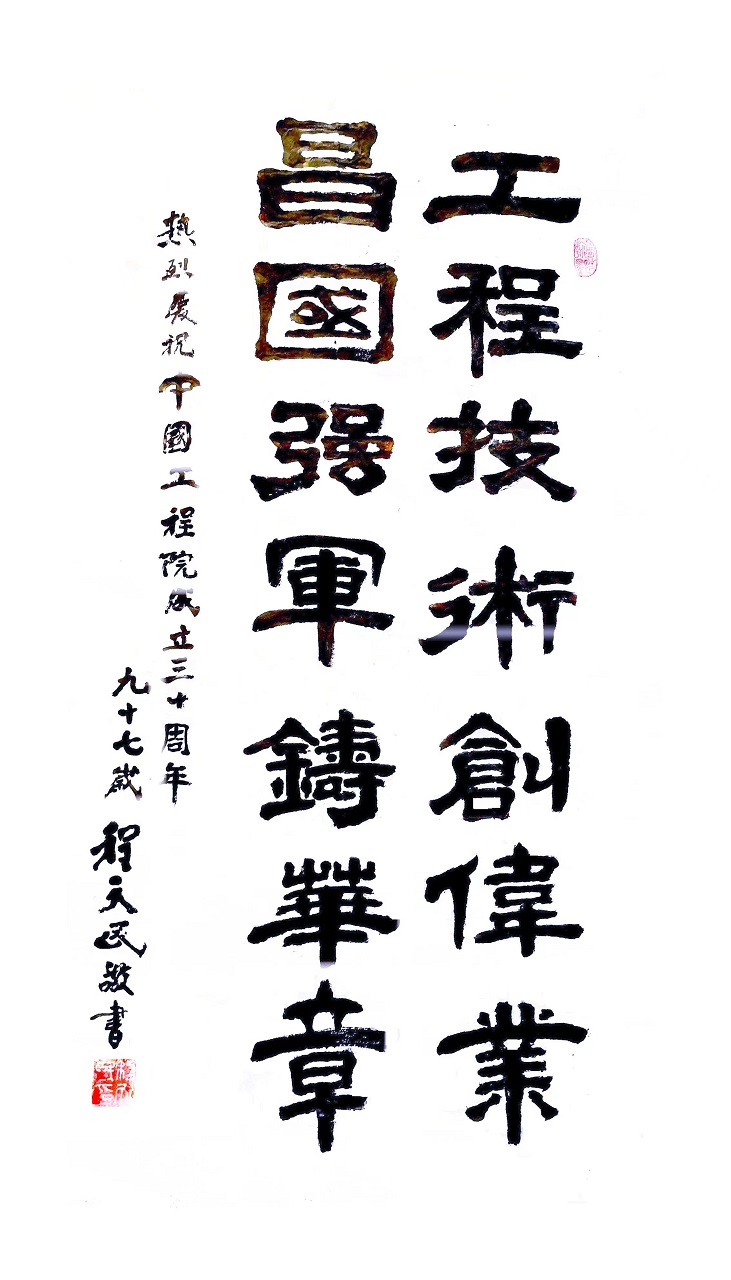 工程技術創偉業
昌國强軍鑄華章
热烈慶祝中國工程院成立三十周年
九十七歲
程天民敬書